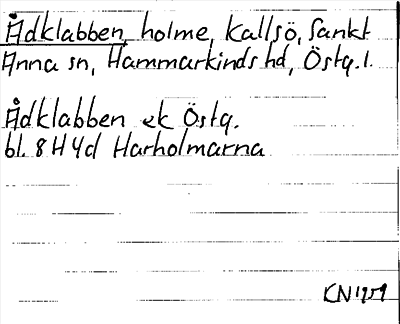 Ådklabben, holme, Kallsö, Sankt
Anna sn, Hammarkinds hd, Östg. l.
Ådklabben ek Östg.
bl. 8H4d Harholmarna
KN 1959